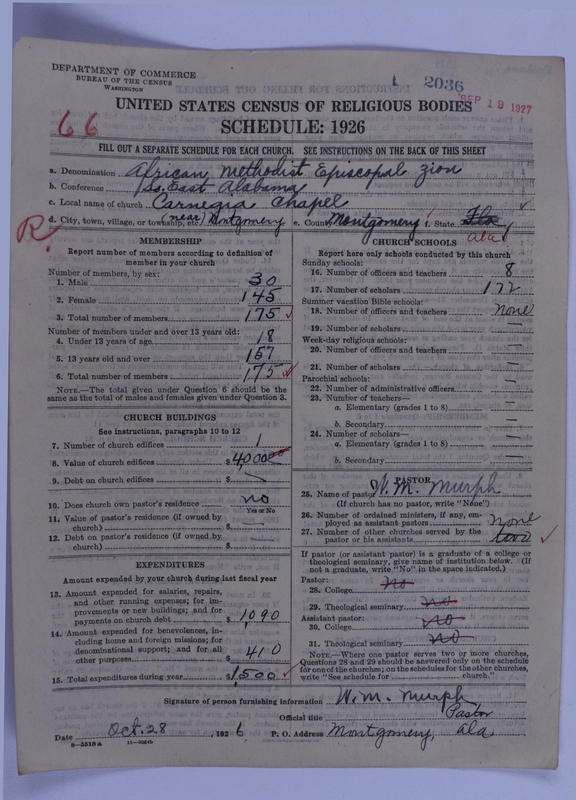 DEPARTMENT OF COMMERCE
BUREAU OF THE CENSUS
WASHINGTON
2036
SEP 19 1927
UNITED STATES CENSUS OF RELIGIOUS BODIES
66
SCHEDULE: 1926
FILL OUT A SEPARATE SCHEDULE FOR EACH CHURCH. SEE INSTRUCTIONS ON THE BACK OF THIS SHEET
a. Denomination African Methodist Episcopal Zion
b. Conference So. East Alabama
c. Local name of church Carnegia Chapel
d. City, town, village, or township, etc. (near) Montgomery e. County Montgomery f. State Fla Ala
R.
MEMBERSHIP
Report number of members according to definition of member in your church
Number of members, by sex:
1. Male 30
2. Female 145
3. Total number of members 175
Number of members under and over 13 years old:
4. Under 13 years of age 18
5. 13 years old and over 157
6. Total number of members 175
NOTE.—The total given under Question 6 should be the same as the total of males and females given under Question 3.
CHURCH BUILDINGS
See instructions, paragraphs 10 to 12
7. Number of church edifices 1
8. Value of church edifices $4,000
9. Debt on church edifices $ —
10. Does church own pastor's residence no
Yes or No
11. Value of pastor's residence (if owned by church) $ —
12. Debt on pastor's residence (if owned by church) $ —
EXPENDITURES
Amount expended by your church during last fiscal year
13. Amount expended for salaries, repairs, and other running expenses; for improvements or new buildings; and for payments on church debt $1,090
14. Amount expended for benevolences, including home and foreign missions; for denominational support; and for all other purposes $410
15. Total expenditures during year $1,500
CHURCH SCHOOLS
Report here only schools conducted by this church
Sunday schools:
16. Number of officers and teachers 8
17. Number of scholars 172
Summer vacation Bible schools:
18. Number of officers and teachers none
19. Number of scholars —
Week-day religious schools:
20. Number of officers and teachers —
21. Number of scholars —
Parochial schools:
22. Number of administrative officers —
23. Number of teachers—
a. Elementary (grades 1 to 8) —
b. Secondary —
24. Number of scholars—
a. Elementary (grades 1 to 8) —
b. Secondary —
PASTOR
25. Name of pastor W. M. Murph
(If church has no pastor, write "None")
26. Number of ordained ministers, if any, employed as assistant pastors none
27. Number of other churches served by the pastor or his assistant two
If pastor (or assistant pastor) is a graduate of a college or theological seminary, give name of institution below. (If not a graduate, write "No" in the space indicated.)
Pastor:
28. College no
29. Theological seminary no
Assistant pastor:
30. College no
31. Theological seminary no
NOTE.—Where one pastor serves two or more churches, Questions 28 and 29 should be answered only on the schedule for one of the churches; on the schedules for the other churches, write "See schedule for church."
Signature of person furnishing information W. M. Murph
Official title Pastor
Date Oct. 28, 1926 P. O. Address Montgomery, Ala
8—5518a